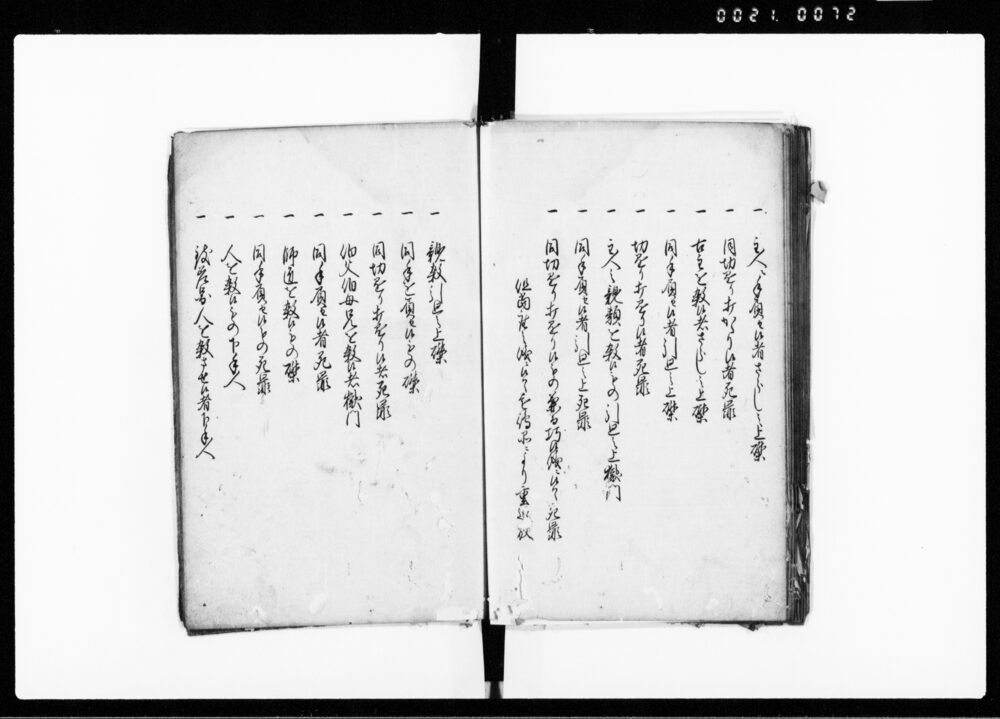 0021.0072
一 主人ニ手負せ候者さらし之上磔
一 同切かゝり打かゝり候者死罪
一 古主を殺候者さらし之上磔
一 同手負せ候者引廻之上磔
一 切かゝり打かゝり候者死罪
一 主人之親類を殺候もの引廻之上獄門
一 同手負せ候者引廻之上死罪
一 同切かゝり打かゝり候もの兼而巧候儀ニ候ハヽ死罪
但当座之儀ニ候ハヽ
一 親殺引廻之上磔
一 同手を負せ候もの磔
一 同切かゝり打かゝり候者死罪
一 伯父伯母兄を殺候者獄門
一 同手負せ候者死罪
一 師匠を殺候もの磔
一 同手負せ候もの死罪
一 人を殺候もの下手人
一 人を殺させ候者下手人